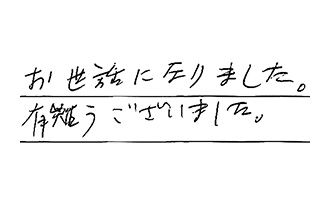 お世話に左りました。
有難うございました。